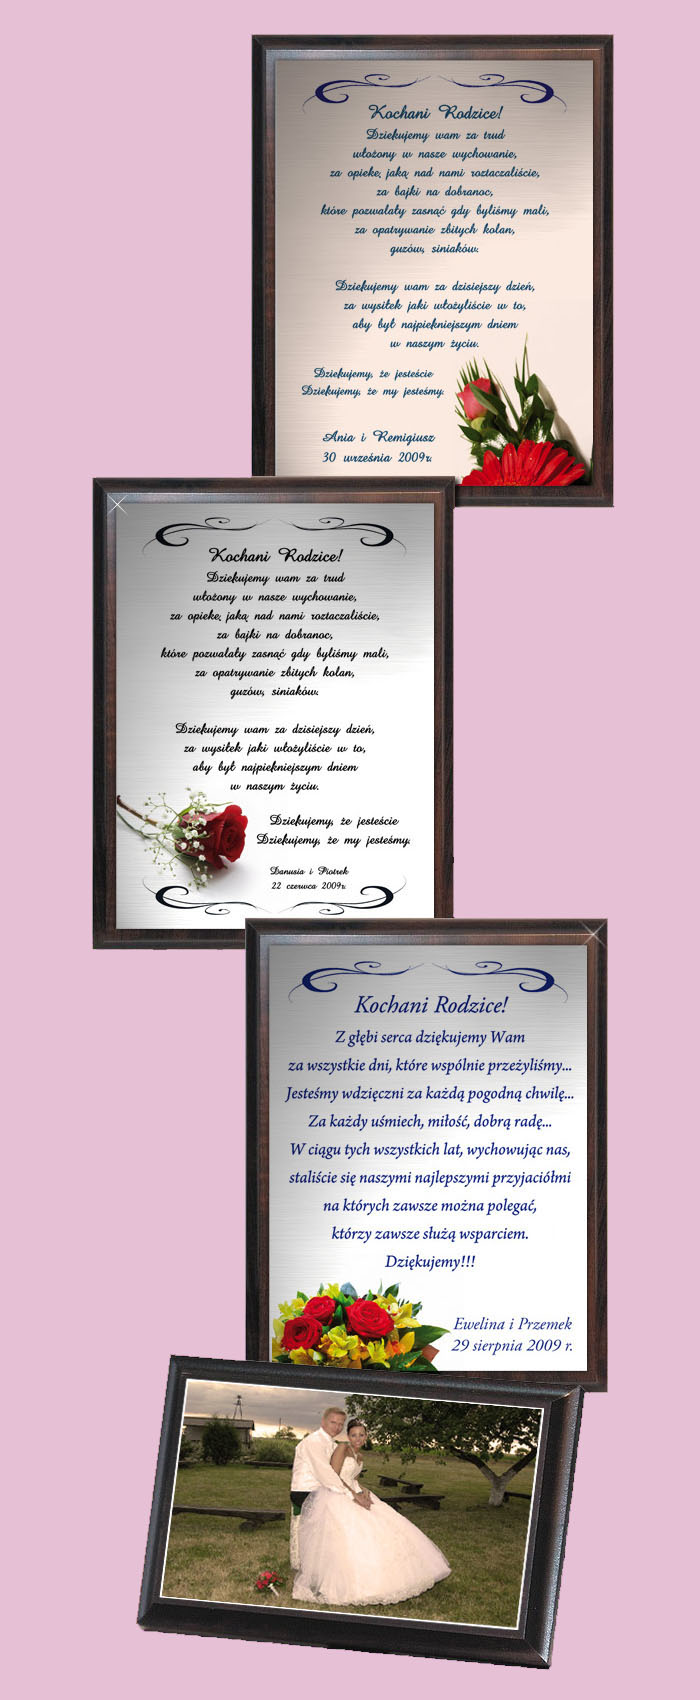 Kochani Rodzice!
Dziękujemy wam za trud
włożony w nasze wychowanie,
za opiekę, jaką nad nami roztaczaliście,
za bajki na dobranoc,
które pozwalały zasnąć gdy byliśmy mali,
za opatrywanie zbitych kolan,
guzów, siniaków.
Dziękujemy wam za dzisiejszy dzień,
za wysiłek jaki włożyliście w to,
aby był najpiękniejszym dniem
w naszym życiu.
Dziękujemy, że jesteście
Dziękujemy, że my jesteśmy.
Ania i Remigiusz
30 września 2009r.
Kochani Rodzice!
Dziękujemy wam za trud
włożony w nasze wychowanie,
za opiekę, jaką nad nami roztaczaliście,
za bajki na dobranoc,
które pozwalały zasnąć gdy byliśmy mali,
za opatrywanie zbitych kolan,
guzów, siniaków.
Dziękujemy wam za dzisiejszy dzień,
za wysiłek jaki włożyliście w to,
aby był najpiękniejszym dniem
w naszym życiu.
Dziękujemy, że jesteście
Dziękujemy, że my jesteśmy.
Danusia i Piotrek
22 czerwca 2009r.
Kochani Rodzice!
Z głębi serca dziękujemy Wam
za wszystkie dni, które wspólnie przeżyliśmy...
Jesteśmy wdzięczni za każdą pogodną chwilę...
Za każdy uśmiech, miłość, dobrą radę...
W ciągu tych wszystkich lat, wychowując nas,
staliście się naszymi najlepszymi przyjaciółmi
na których zawsze można polegać,
którzy zawsze służą wsparciem.
Dziękujemy!!!
Ewelina i Przemek
29 sierpnia 2009 r.